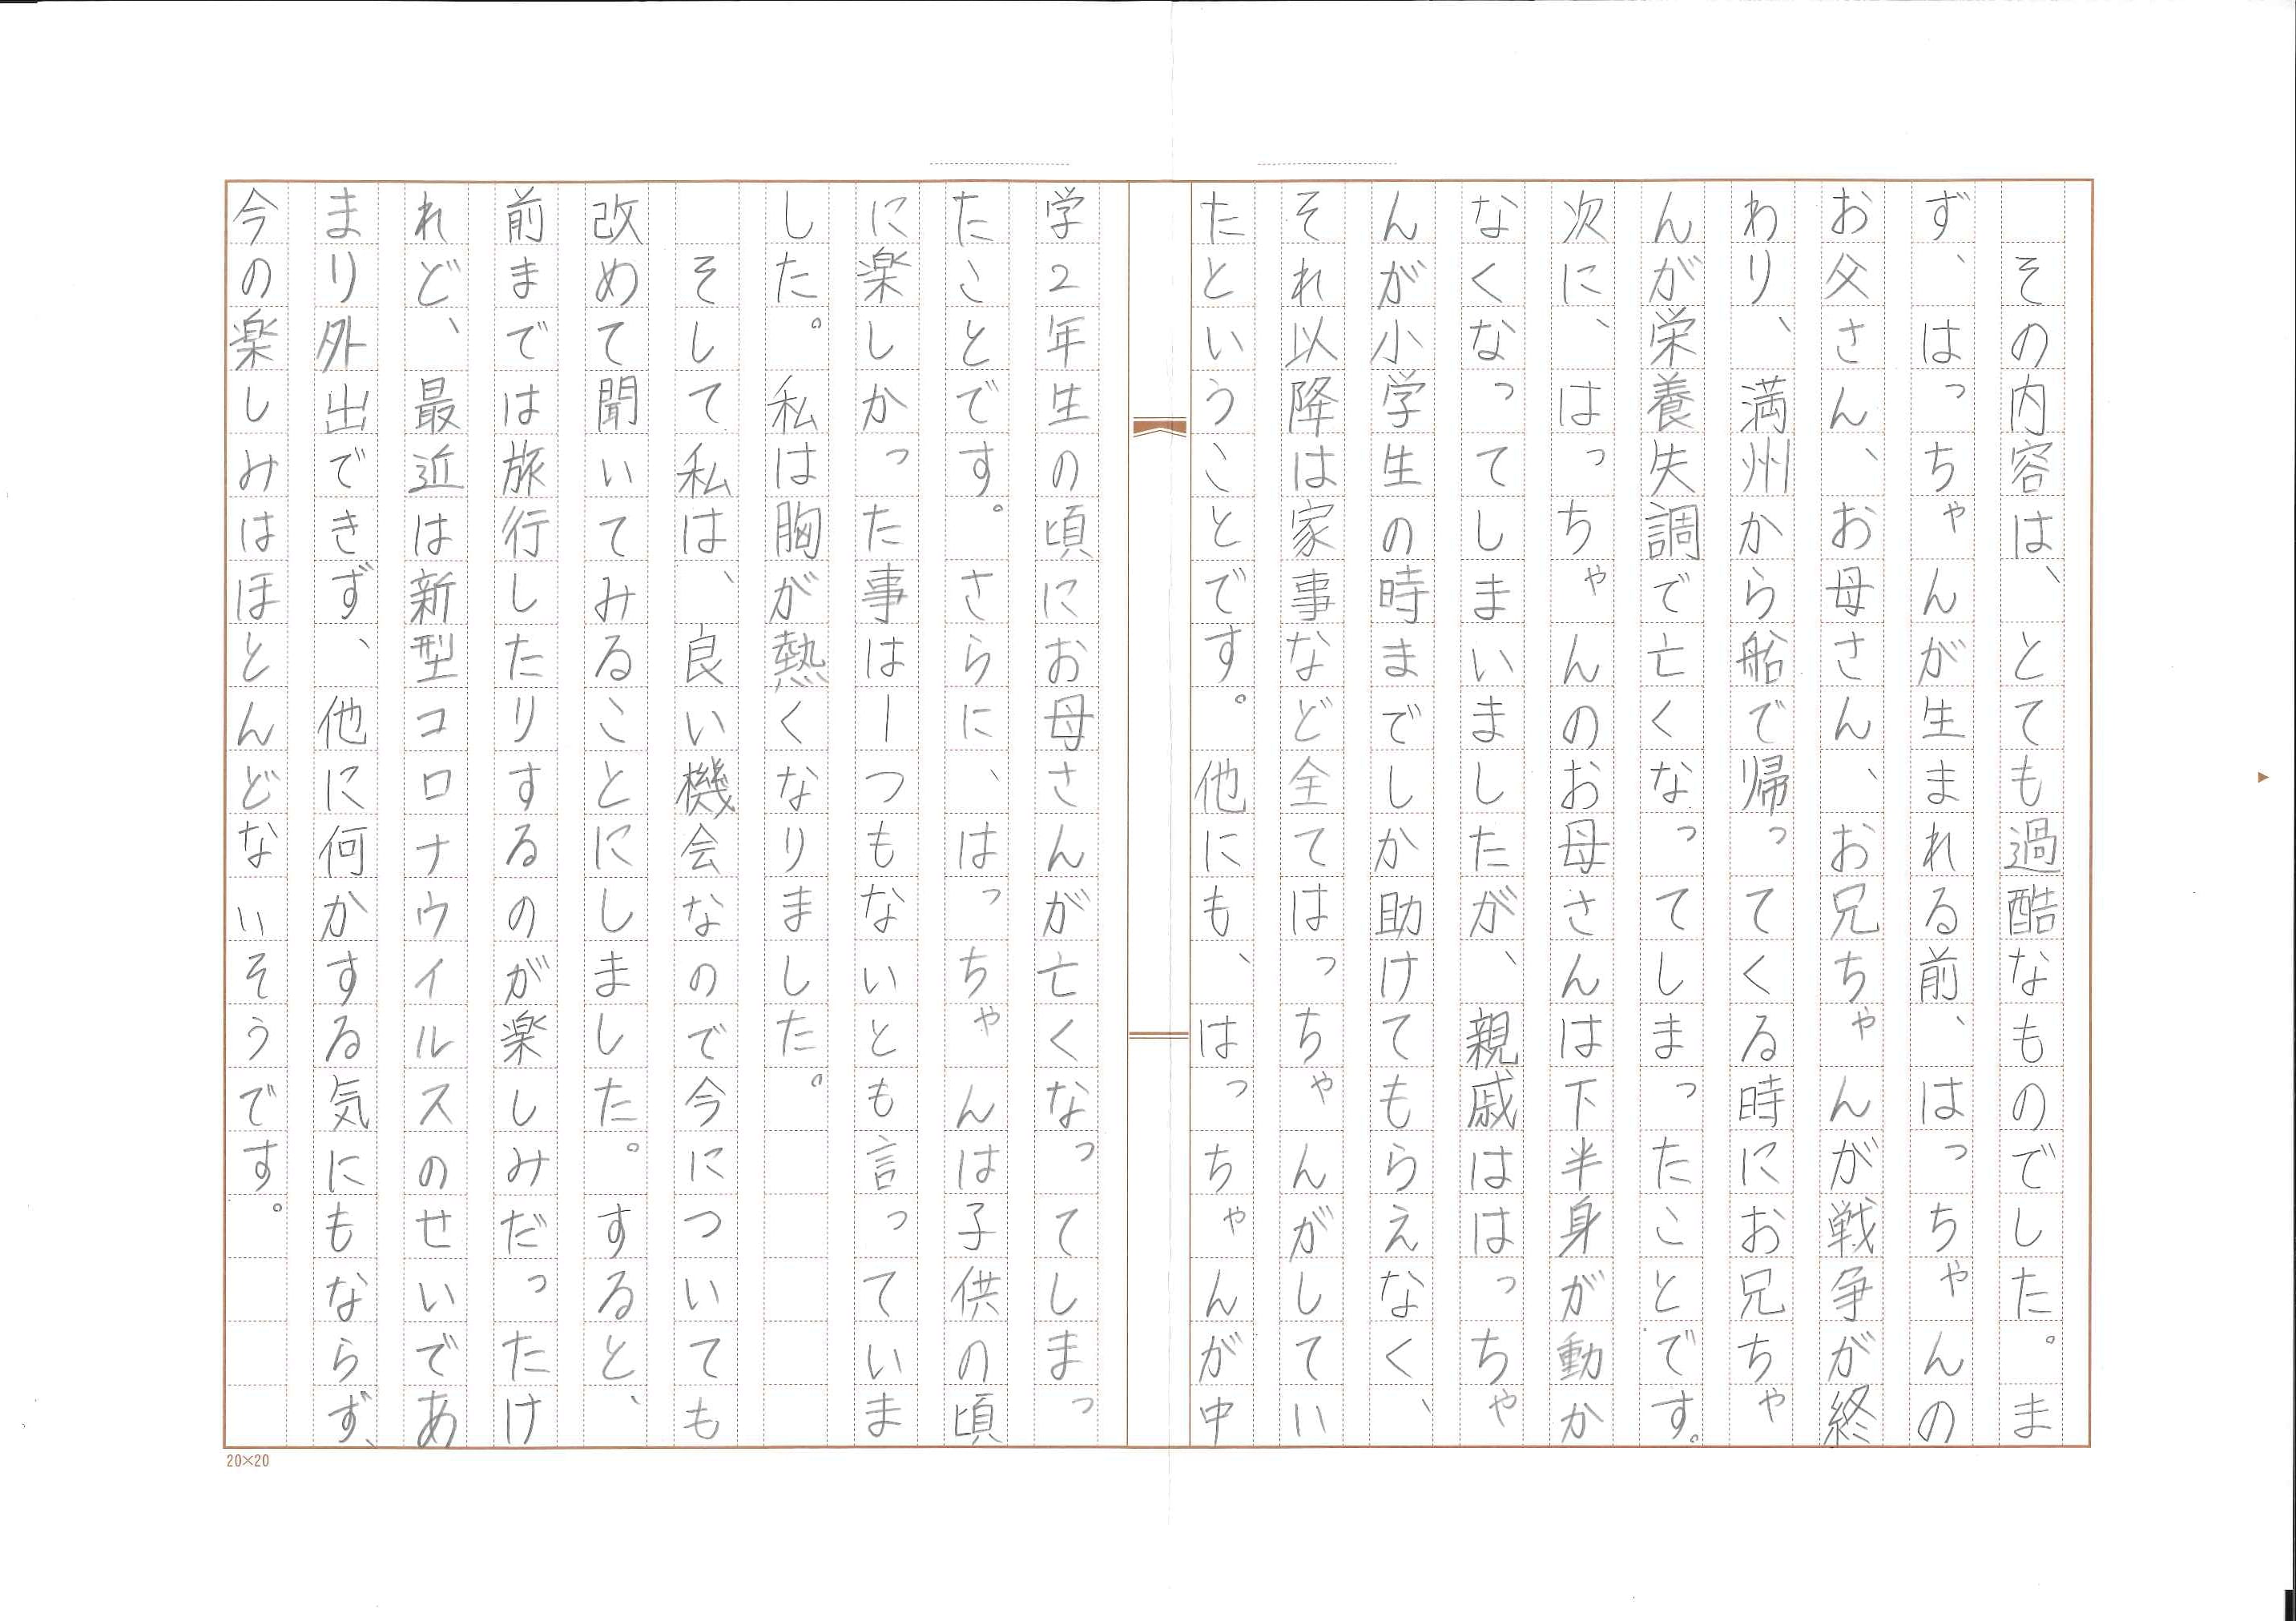 その内容は、とても過酷なものでした。ま
ず、はっちゃんが生まれる前、はっちゃんの
お父さん、お母さん、お兄ちゃんが戦争が終
わり、満州から船で帰ってくる時にお兄ちゃ
んが栄養失調で亡くなってしまったことです。
次に、はっちゃんのお母さんは下半身が動か
なくなってしまいましたが、親戚ははっちゃ
んが小学生の時までしか助けてもらえなく、
それ以降は家事など全てはっちゃんがしてい
たということです。他にも、はっちゃんが中
学2年生の頃にお母さんが亡くなってしまっ
たことです。さらに、はっちゃんは子供の頃
に楽しかった事は一つもないとも言っていま
した。私は胸が熱くなりました。
そして私は、良い機会なので今についても
改めて聞いてみることにしました。すると、
前までは旅行したりするのが楽しみだったけ
れど、最近は新型コロナウイルスのせいであ
まり外出できず、他に何かする気にもならず、
今の楽しみはほとんどないそうです。
20×20